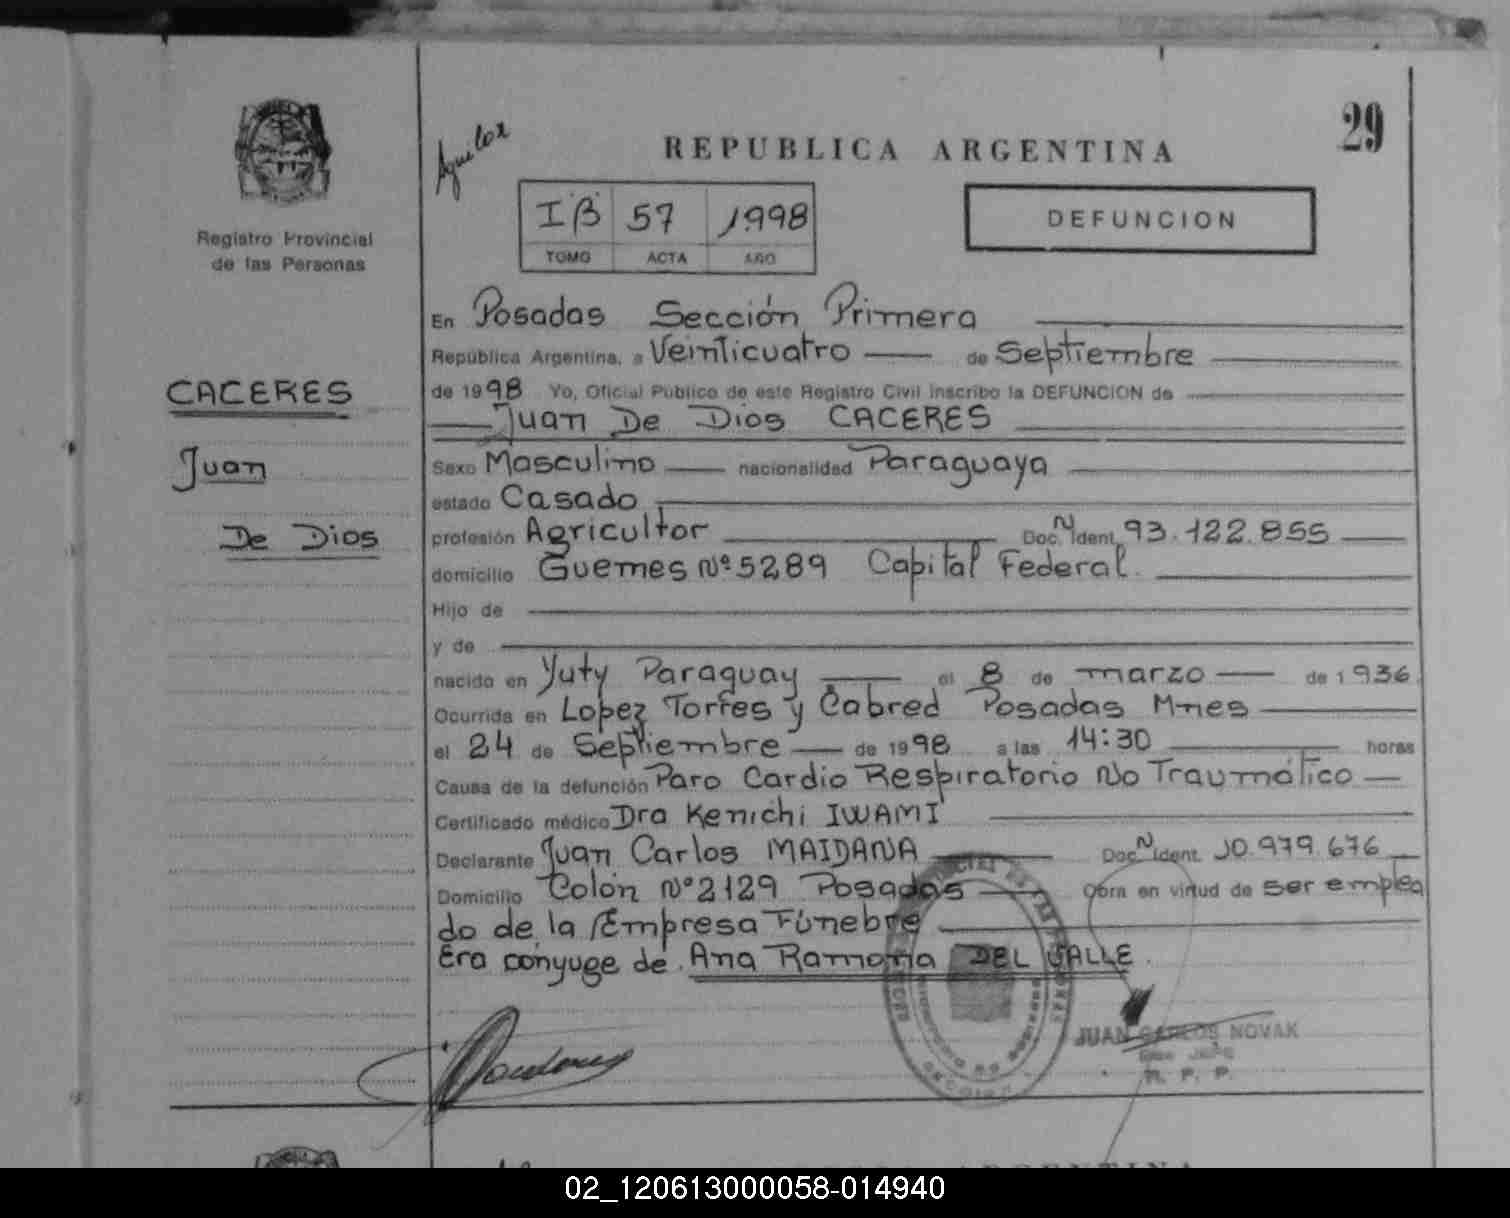 29
Aguilar
REPUBLICA ARGENTINA
IB 57 1998
TOMO ACTA AÑO
DEFUNCION
Registro Provincial
de las Personas
CACERES
Juan
De Dios
En Posadas Sección Primera
República Argentina, a Veinticuatro de Septiembre
de 1998 Yo, Oficial Público de este Registro Civil inscribo la DEFUNCION de
Juan De Dios CACERES
Sexo Masculino nacionalidad Paraguaya
estado Casado
profesión Agricultor Doc. N Ident. 93.122.855
domicilio Guemes Nº 5289 Capital Federal.
Hijo de
y de
nacido en Yuty Paraguay el 8 de marzo de 1936
Ocurrida en Lopez Torres y Cabred Posadas Mnes
el 24 de Septiembre de 1998 a las 14:30 horas
Causa de la defunción Paro Cardio Respiratorio No Traumático
Certificado médico Dra Kenichi IWAMI
Declarante Juan Carlos MAIDANA Doc. N Ident. 10.979.676
Domicilio Colón Nº 2129 Posadas Obra en virtud de ser emplea
do de la Empresa Fúnebre
Era conyuge de Ana Ramona DEL VALLE.
JUAN CARLOS NOVAK
R. P. P.
02_120613000058-014940